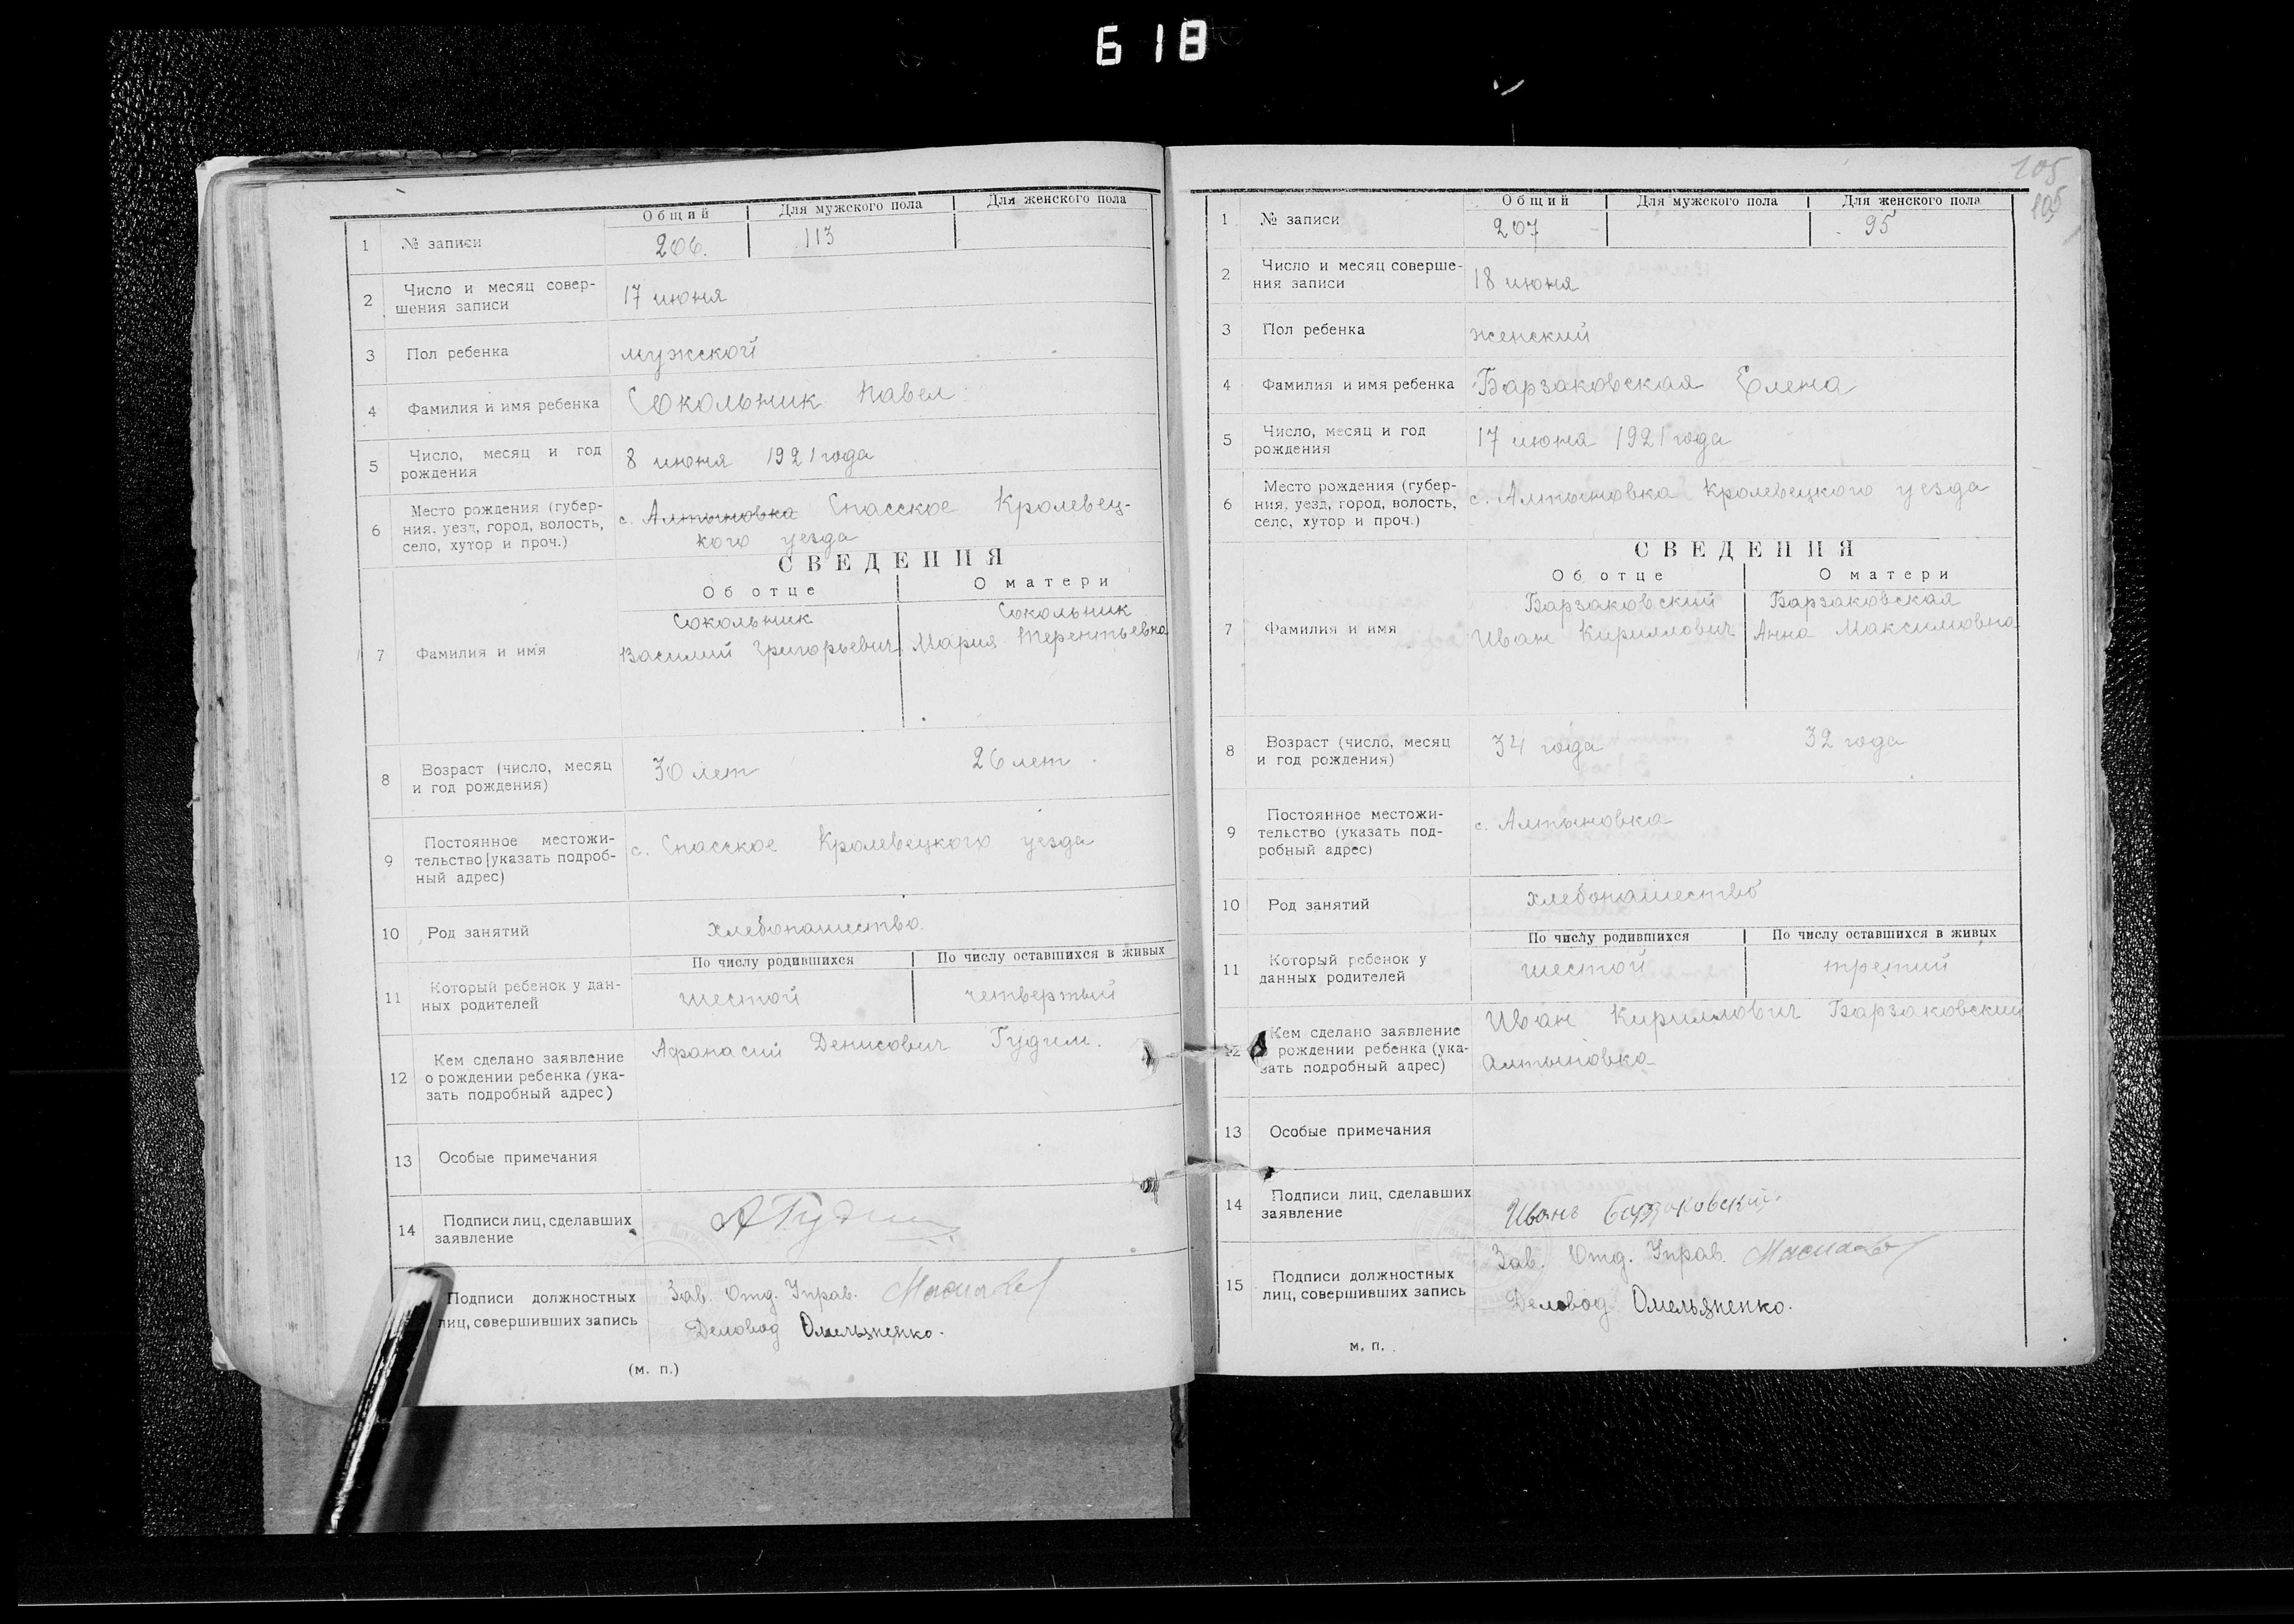 618
Общий Для мужского пола Для женского пола
1 № записи 206. 113
2 Число и месяц совер-
шения записи
17 июня
3 Пол ребенка мужской
4 Фамилия и имя ребенка Сокольник Павел
5 Число, месяц и год
рождения
8 июня 1921 года
6 Место рождения (губер-
ния, уезд, город, волость,
село, хутор и проч.)
с. Алтыновка Спасское Кролевец-
кого уезда
СВЕДЕНИЯ
Об отце О матери
7 Фамилия и имя
Сокольник Сокольник
Василий Григорьевич Мария Терентьевна
8 Возраст (число, месяц
и год рождения)
30 лет 26 лет.
9 Постоянное местожи-
тельство [указать подроб-
ный адрес)
с. Спасское Кролевецкого уезда
10 Род занятий хлебопашество.
По числу родившихся По числу оставшихся в живых
11 Который ребенок у дан-
ных родителей
шестой четвертый
12 Кем сделано заявление
о рождении ребенка (ука-
зать подробный адрес)
Афанасий Денисович Гудим.
13 Особые примечания
14 Подписи лиц, сделавших
заявление
АГудим
Подписи должностных
лиц, совершивших запись
Зав. Отд. Управ.
Деловод Омельяненко.
(м. п.)
105
105
Общий Для мужского пола Для женского пола
1 № записи 207 95
2 Число и месяц соверше-
ния записи
18 июня
3 Пол ребенка женский
4 Фамилия и имя ребенка Барзаковская Елена
5 Число, месяц и год
рождения
17 июня 1921 года
6 Место рождения (губер-
ния, уезд, город, волость,
село, хутор и проч.)
с. Алтыновка Кролевецкого уезда
СВЕДЕНИЯ
Об отце О матери
7 Фамилия и имя
Барзаковский Барзаковская
Иван Кириллович Анна Максимовна
8 Возраст (число, месяц
и год рождения)
34 года 32 года
9 Постоянное местожи-
тельство (указать под-
робный адрес)
с. Алтыновка
10 Род занятий хлебопашество
По числу родившихся По числу оставшихся в живых
11 Который ребенок у
данных родителей
шестой третий
12 Кем сделано заявление
рождении ребенка (ука-
зать подробный адрес)
Иван Кириллович Барзаковский
Алтыновка
13 Особые примечания
14 Подписи лиц, сделавших
заявление
Иванъ Барзаковский.
15 Подписи должностных
лиц, совершивших запись
Зав. Отд. Управ.
Деловод Омельяненко.
м. п.